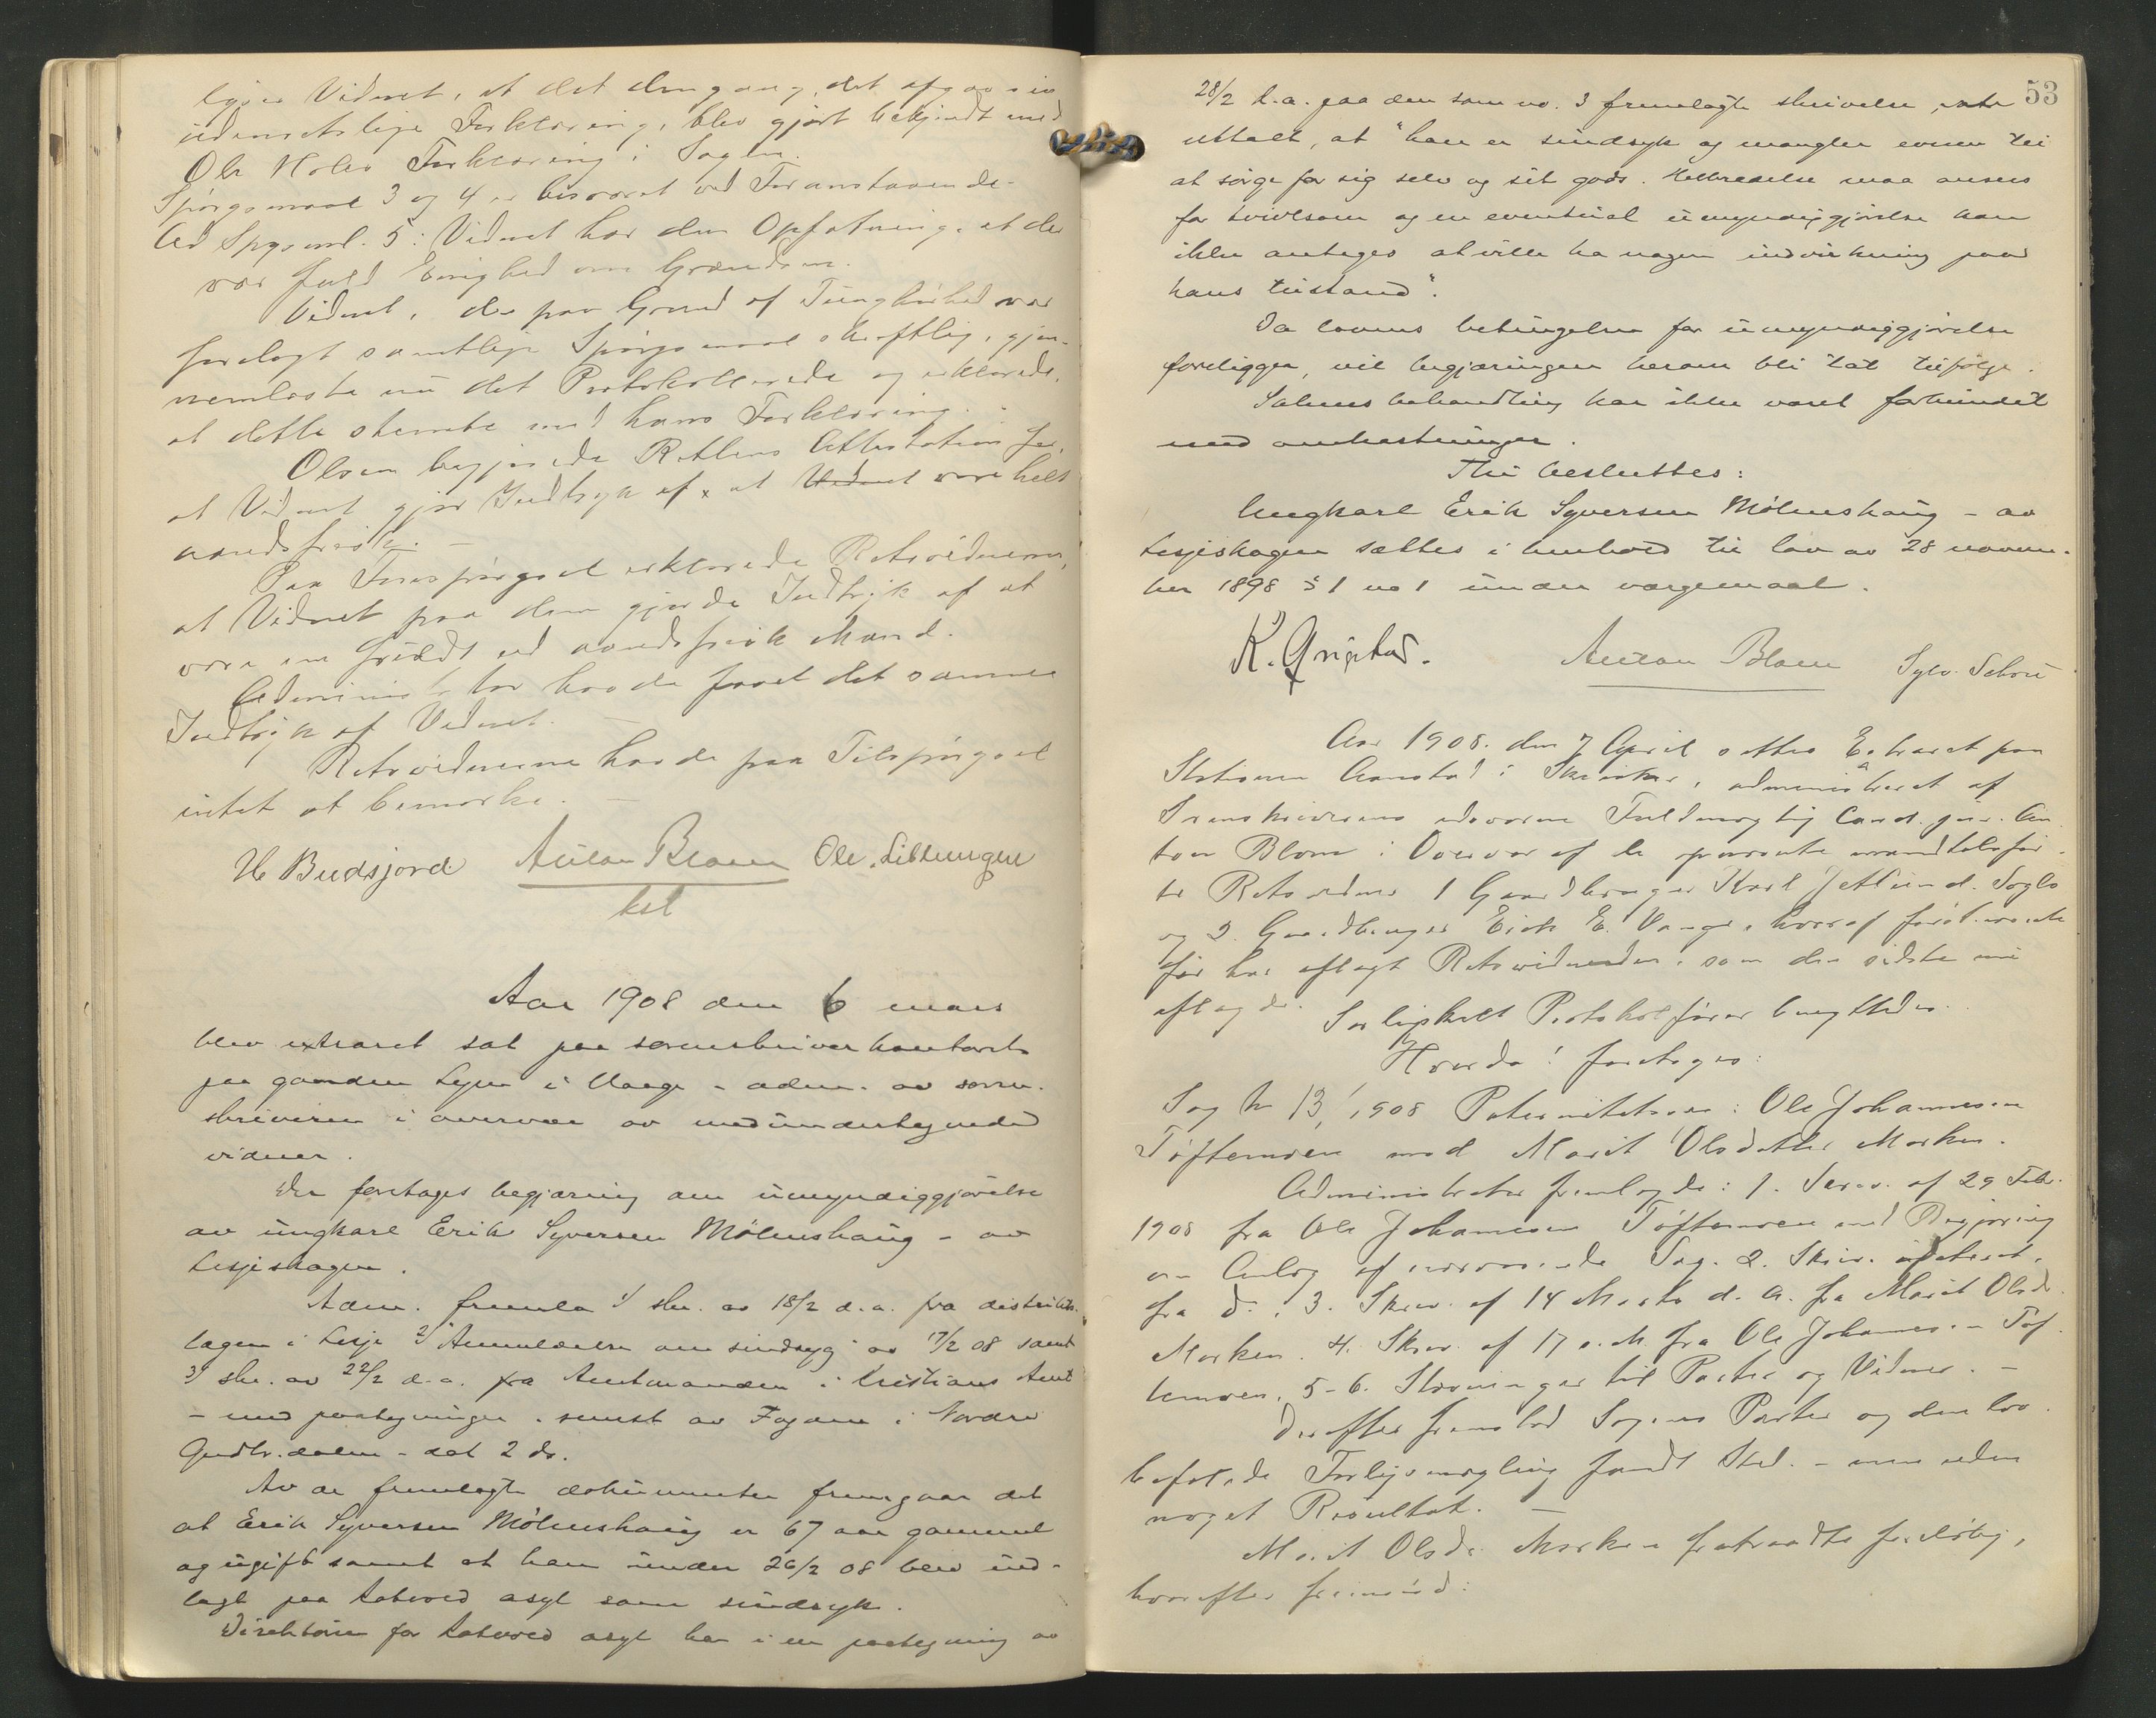 Vidnet, at det dengang, det afgav sin
udenretslige Forklaring, blev gjort bekjendt med
Ole Holes Forklaring i Sagen.
Spørgsmaal 3 og 4 er besvaret ved Foranstaaende.
Ad Spgsml. 5: Vidnet har den Opfatning, at der
var fuld Enighed om Grændsen.
Vidnet, der paa Grund af Tunghørhed var
forelagt samtlige Spørgsmaal skriftlig, gjen-
nemlæste nu det Protokollerede og erklærede,
at dette stemte med hans Forklaring.
Olsen begjærede Rettens Attestation for,
at Vidnet gjør Indtryk af, at Vidnet være helt
aandsfrisk. –
Paa Forespørgsel erklærede Retsvidnerne,
at Vidnet paa dem gjorde Indtryk af at
være en fuldt ud aandsfrisk Mand.
Administrator havde faaet det samme
Indtryk af Vidnet. –
Retsvidnerne havde paa Tilspørgsel
intet at bemærke. –
H Budsjord Anton Blom Ole Lillungen
kst
Aar 1908 den 6 mars
blev extraret sat paa sorenskriverkontoret
paa gaarden Lyen i Vaage – adm. av soren-
skriveren i overvær av medundertegnede
vidner.
Der foretages begjæring om umyndiggjørelse
av ungkarl Erik Syversen Mölmshaug – av
Lesjeskogen.
Adm. fremla 1/ skr. av 18/2 d.a. fra distrikts-
lægen i Lesje 2/ "Anmeldelse om sindsyg" av 17/2 08 samt
3/ skr. av 22/2 d.a. fra Amtmanden i Kristians Amt
– med paategninger, senest av Fogden i Nordre
Gudbr.dalen – dat 2 ds.
Av de fremlagte dokumenter fremgaar det
at Erik Syversen Mölmshaug er 67 aar gammel
og ugift samt at han under 26/2 08 blev ind-
lagt paa Rotvold asyl som sindsyk.
Direktøren for Rotvold asyl har i en paategning av
53
28/2 d.a. paa den som no. 3 fremlagte skrivelse
uttalt, at "han er sindsyk og mangler evnen til
at sörge for sig selv og sit gods. Helbredelse maa anses
for tvivlsom og en eventuel umyndiggjörelse kan
ikke antages at ville ha nogen indvirkning paa
hans tilstand".
Da lovens betingelser for umyndiggjörelse
foreligger, vil begjæringen herom bli tat tilfölge.
Sakens behandling har ikke været forbundet
med omkostninger.
Thi besluttes:
Ungkarl Erik Syversen Mölmshaug – av
Lesjeskogen sættes i henhold til lov av 28 novem-
ber 1898 § 1 no 1 under vergemaal.
K. Grigstad. Anton Blom Sylv. Schou
Aar 1908. den 7 April sattes Extraret paa
Stationen Aanstad i Skiaker, administreret af
Sorenskriverens edsvorne Fuldmægtig Cand. jur. An-
ton Blom i Overvær af de opnævnte mandtalsfør-
te Retsvidner 1 Gaardbruger Karl Jetlund. Soglo
og 2. Gaardbruger Erik E. Vange, hvoraf førstnævnte
før har aflagt Retsvidneeden, som den sidste nu
aflagde. Særligskilt Protokolfører benyttedes.
Hvorda! foretoges:
Sag No 13, 1908 Paternitetssag: Ole Johannesen
Tøftemoen mod Marit Olsdatter Marken.
Administrator fremlagde: 1. Skriv. af 29 Febr.
1908 fra Ole Johannesen Tøftemoen med Begjæring
om Anlæg af nærværende Sag. 2. Skriv. udateret,
fra d°, 3. Skriv. af 14 Marts d. A. fra Marit Olsdr.
Marken. 4. Skriv. af 17 s. M. fra Ole Johannesen Tøf-
temoen. 5-6. Stævninger til Parter og Vidner. –
Derefter fremstod Sagens Parter og den lov-
befalede Forligsmægling fandt Sted. – men uden
noget Resultat. –
Marit Olsdr. Marken fratraadte foreløbig,
hvorefter fremstod: